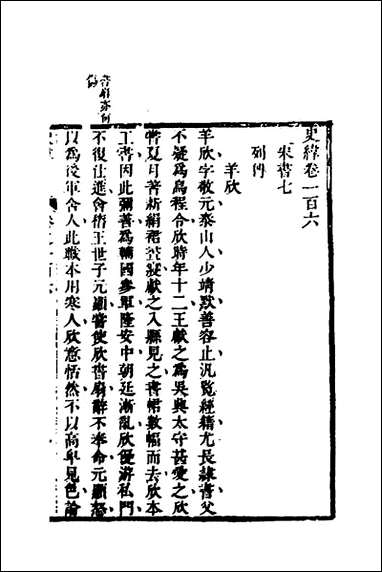 史緯卷一百六
宋書七
列傳
羊欣
羊欣字敬元泰山人少靖默善容止汎覽經籍尤長隸書父
不疑為烏程令欣時年十二王獻之為吳興太守甚愛之欣
嘗夏月著新絹裙晝寢獻之入縣見之書裙數幅而去欣本
工書因此彌善為輔國參軍隆安中朝廷漸亂欣優游私門
不復仕進會稽王世子元顯嘗使欣書扇辭不奉命元顯怒
以為後軍舍人此職本用寒人欣意恬然不以高卑見色論
書扇亦何